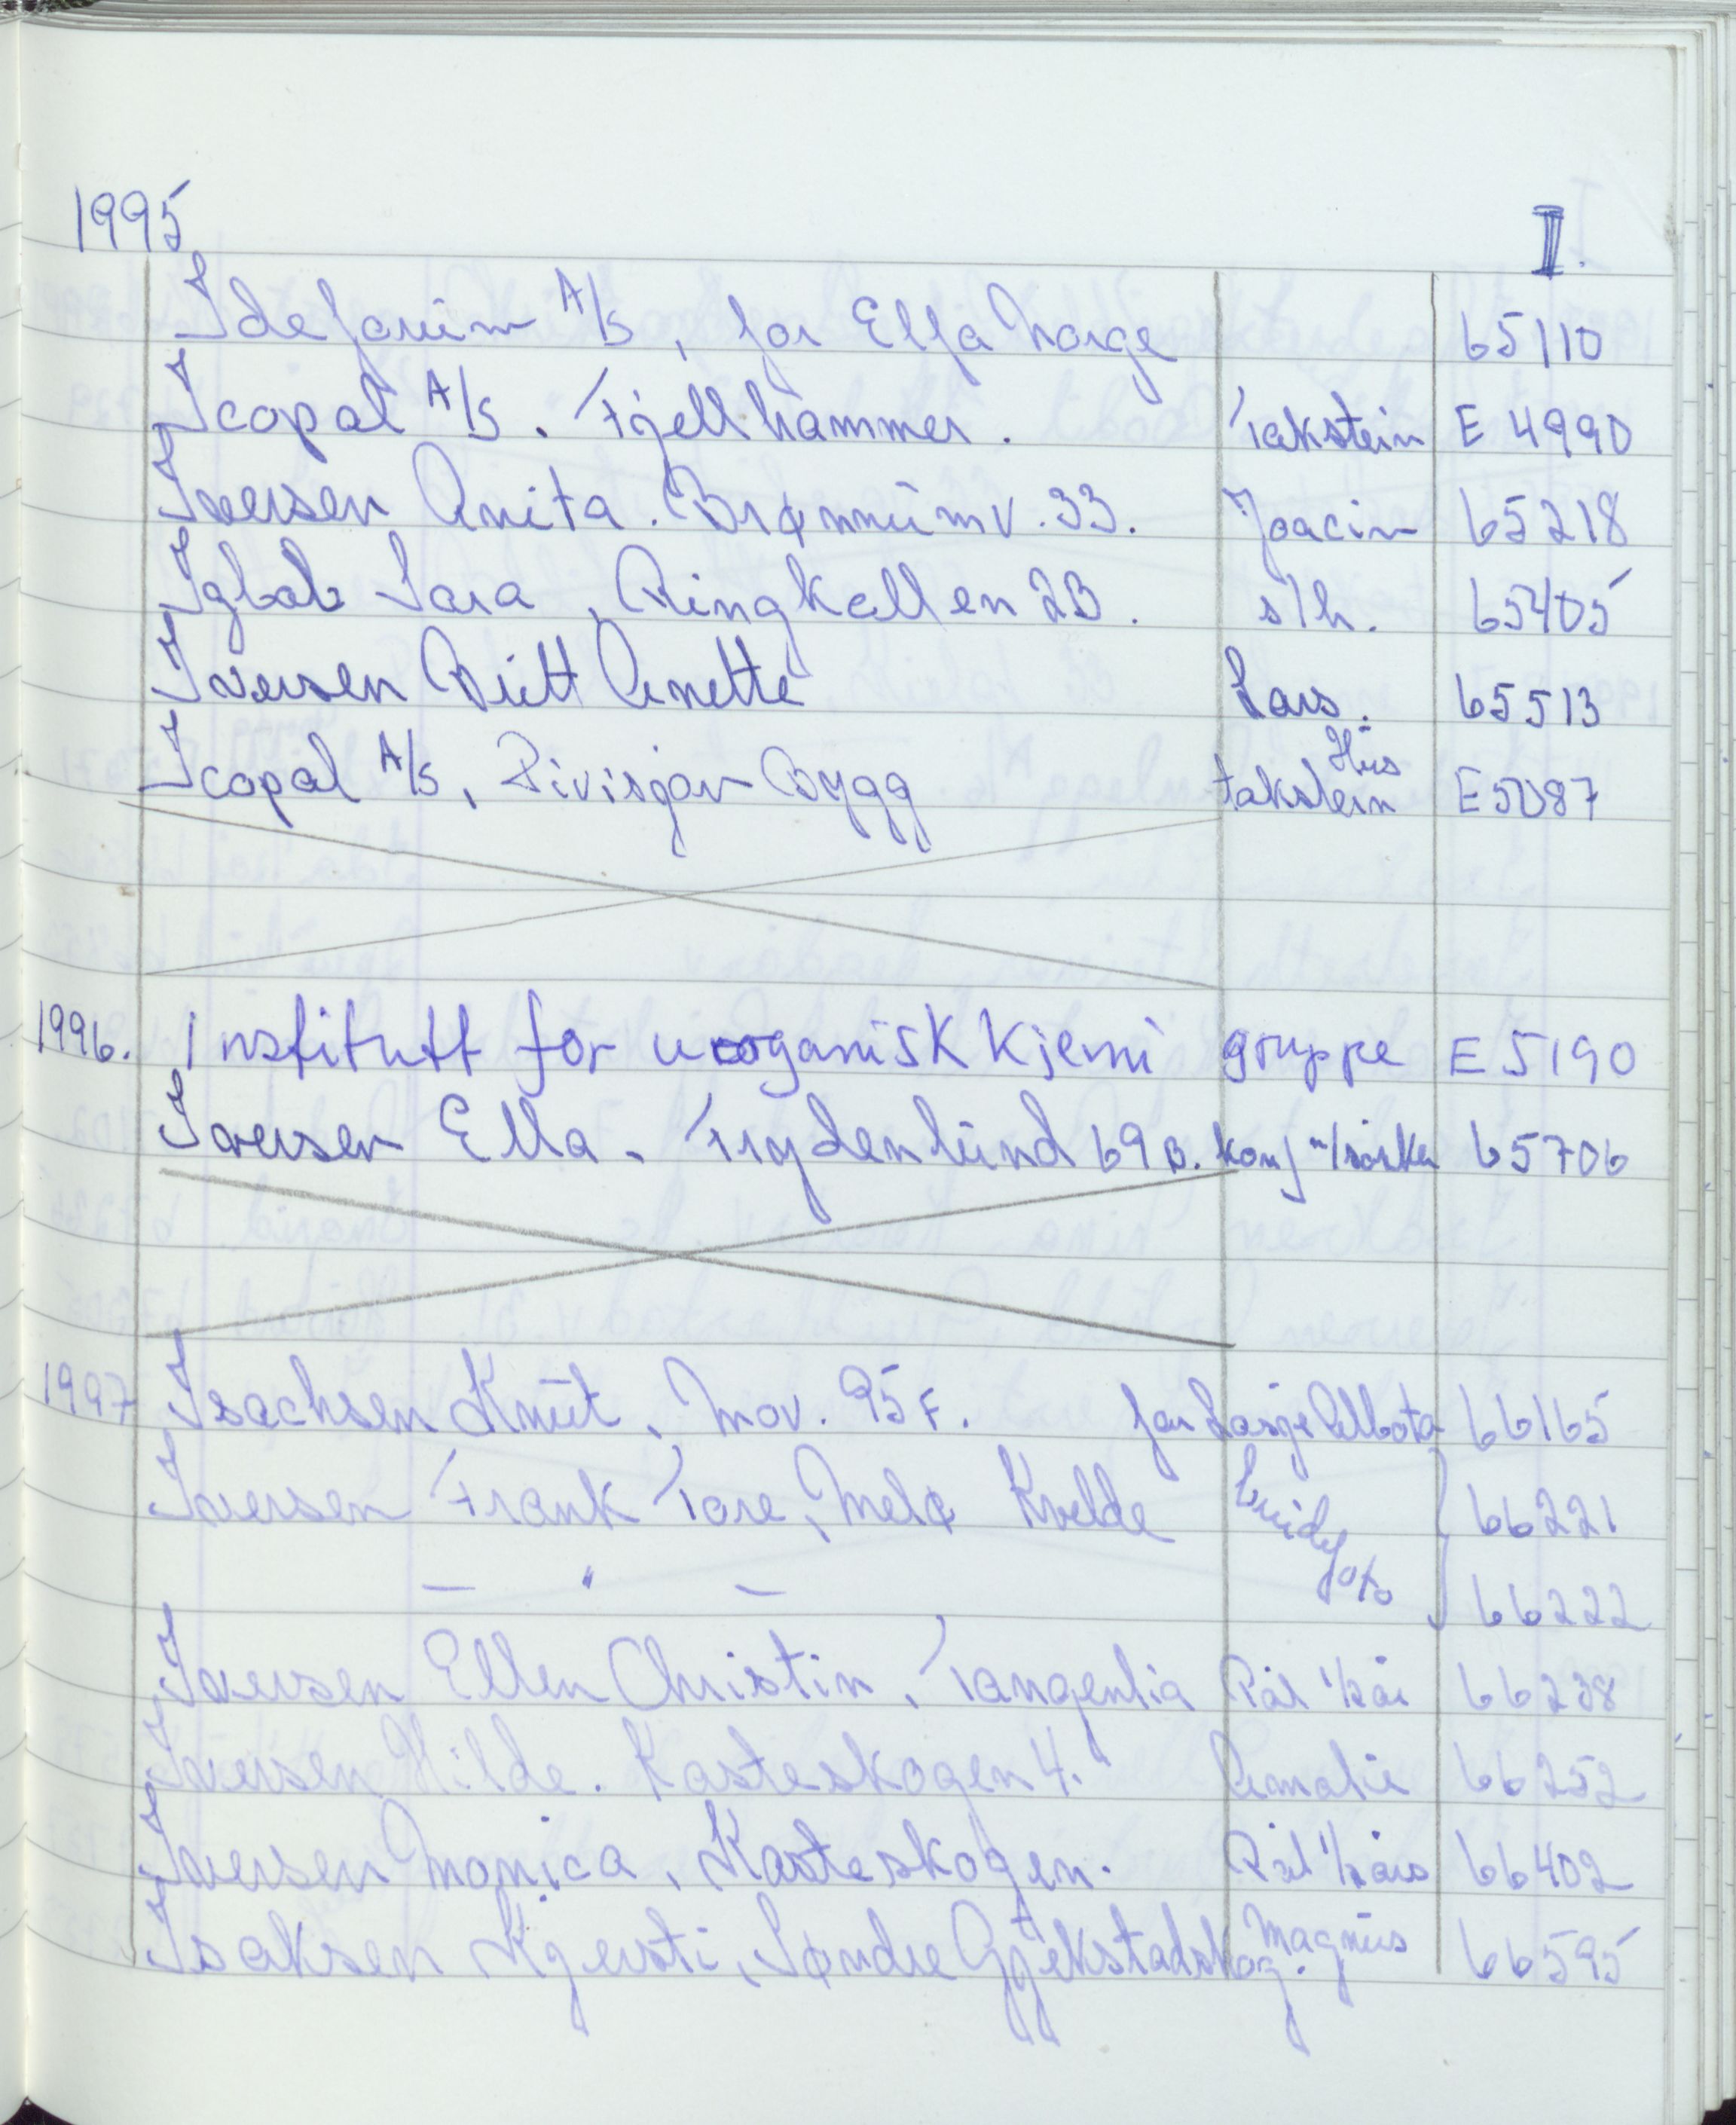 1995
I.
Ideforum A/S, for Elfa Norge 65110
Icopal A/S. Fjellhammer. Takstein E 4990
Iversen Anita. Brønnumv. 33. Joacim 65218
Iqbal Sara, Ringkollen 2B. s/h. 65405
Iversen Britt Anette Lars. 65513
Icopal A/S, Divisjon Bygg Hus takstein E5087
1996. Institutt for uorganisk kjemi gruppe E 5190
Iversen Ella. Frydenlund 69B. konf 65706
1997 Isachsen Knut, Mov. 95F. 66165
Iversen Frank Tore, Melø Kvelde 66221
— " — foto 66222
Iversen Ellen Christin, Tangenlia Pål 1/2 år 66238
Iversen Hilde. Kasteskogen 4. Amalie 66252
Iversen Monica, Kasteskogen. 66402
Isaksen Kjersti, Søndre Gjekstadskog. Magnus 66595